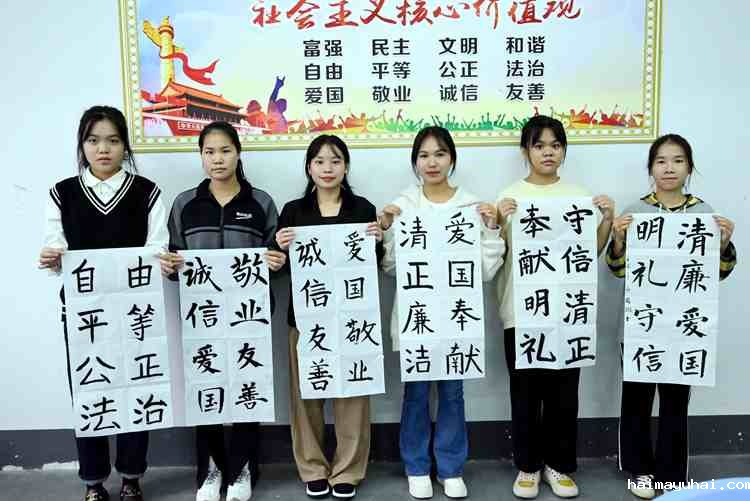 社会主义核心价值观
富强 民主 文明 和谐
自由 平等 公正 法治
爱国 敬业 诚信 友善
自由
平等
公正
法治
敬业友善
诚信爱国
爱国敬业
诚信友善
爱国奉献
清正廉洁
守信清正
奉献明礼
清廉爱国
明礼守信
haimayuhai.com